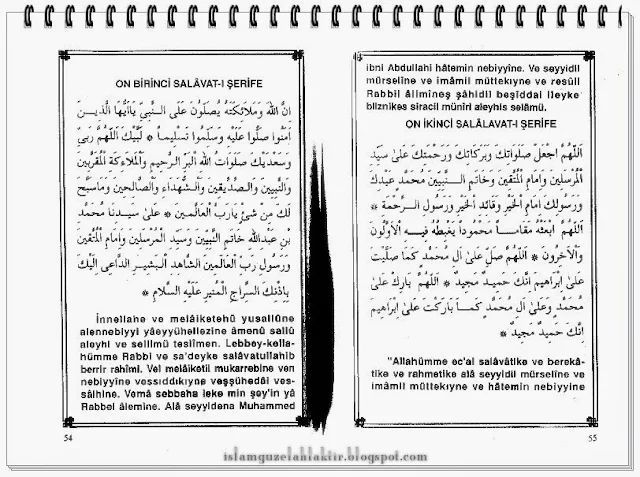 ON BİRİNCİ SALÂVAT-I ŞERİFE
انَّ اللهَ وَمَلَائِكَتَهُ يُصَلُّونَ عَلَى النَّبِيِّ يَااَيُّهَا الَّذِيـنَ
اٰمَنُوا صَلُّوا عَلَيْهِ وَسَلِّمُوا تَسْلِيمـاً * لَبَّيْكَ اللّٰهُمَّ رَبِّي
وَسَعْدَيْكَ صَلَوَاتُ اللهِ البَرِّ الرَّحِيمِ وَالْمَلَاءِكَةِ الْمُقَرَّبِينَ
وَالنَّبِيِّينَ وَالصِّدِّيقِينَ وَالشُّهَدَاءِ وَالصَّالِحِينَ وَمَاسَبَّحَ
لَكَ مِنْ شَيْءٍ يَارَبَّ الْعَالَمِينَ * عَلَى سَيِّدِنَا مُحَمَّدِ
بْنِ عَبْدِاللهِ خَاتَمِ النَّبِيِّينَ وَسَيِّدِ الْمُرْسَلِينَ وَاِمَامِ الْمُتَّقِينَ
وَرَسُولِ رَبِّ الْعَالَمِينَ الشَّاهِدِ الْبَشِيرِ الدَّاعِي اِلَيْكَ
بِاِذْنِكَ السِّرَاجِ الْمُنِيرِ عَلَيْهِ السَّلَامُ *
İnnellahe ve melâiketehû yusallûne
alennebiyyi yâeyyühellezîne âmenû sallû
aleyhi ve sellimû teslîmen. Lebbey-kella-
hümme Rabbi ve sa'deyke salâvatullahib
berrir rahîmi. Vel melâiketil mukarrebine ven
nebiyyîne vessıddıkıyne veşşühedâi ves-
sâlhine. Vemâ sebbaha leke min şey'in yâ
Rabbel âlemine. Alâ seyyidena Muhammed
54
ibni Abdullahi hâtemin nebiyyîne. Ve seyyidil
mürselîne ve imâmil müttekıyne ve resûli
Rabbil âlimîneş şâhidil beşiddai ileyke
bliznikes siracil münîri aleyhis selâmü.
ON İKİNCİ SALÂLAVAT-I ŞERİFE
اَللّٰهُمَّ اجْعَلْ صَلَوَاتِكَ وَبَرَكَاتِكَ وَرَحْمَتَكَ عَلَى سَيِّدِ
الْمُرْسَلِينَ وَاِمَامِ الْمُتَّقِينَ وَخَاتَمِ النَّبِيِّينَ مُحَمَّدٍ عَبْدِكَ
وَرَسُولِكَ اِمَامِ الْخَيْرِ وَقَائِدِ الْخَيْرِ وَرَسُولِ الرَّحْمَةِ *
اَللّٰهُمَّ ابْعَثْهُ مَقَامـاً مَحْمُودًا يَغْبِطُهُ فِيـهِ الْاَوَّلُونَ
وَالْاٰخِرُونَ * اَللّٰهُمَّ صَلِّ عَلَى اٰلِ مُحَمَّدٍ كَمَا صَلَّيْتَ
عَلَى اِبْرَاهِيمَ اِنَّكَ حَمِيدٌ مَجِيدٌ * اَللّٰهُمَّ بَارِكْ عَلَى
مُحَمَّدٍ وَعَلَى اٰلِ مُحَمَّدٍ كَمَا بَارَكْتَ عَلَى اِبْرَاهِيمَ
اِنَّكَ حَمِيدٌ مَجِيدٌ *
"Allahümme ec'al salâvâtike ve berekâ-
tike ve rahmetike alâ seyyidil mürselîne ve
imâmil müttekıyne ve hâtemin nebiyyine
55
islamguzelahlaktir.blogspot.com